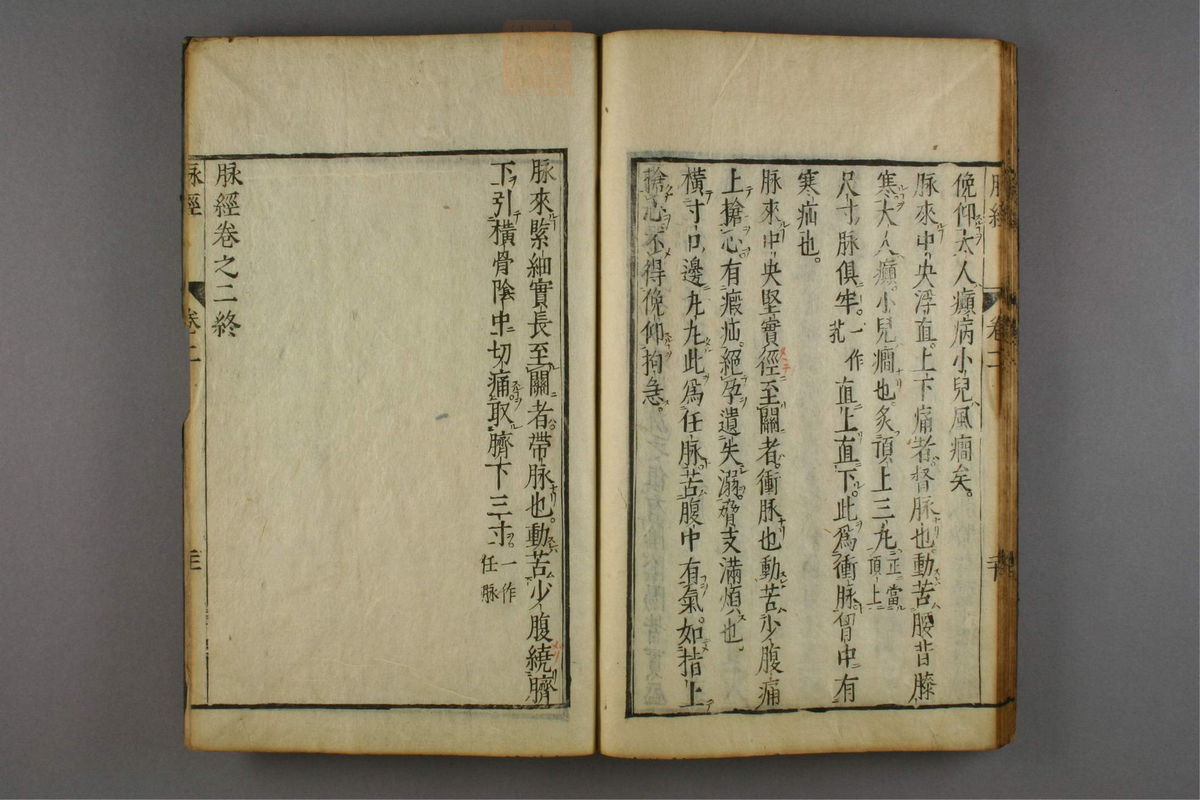 俛仰大人癲病小兒風癇矣。
脉來中央浮直上下痛者督脉也動苦腰背膝
寒大人癲小兒癇也炙頂上三丸正當頂上
尺寸脉俱牢。一作芤直上直下。此為衝脉胷中有
寒疝也。
脉來中央堅實徑至關者。衝脉也動苦少腹痛
上搶心有瘕疝。絕孕遺失溺。脅支滿煩也
橫寸口邊丸丸此為任脉。苦腹中有氣。如指上
搶心不得俛仰拘急。
脉來緊細實長至關者帶脉也。動苦少腹繞臍
下引橫骨陰中切痛。取臍下三寸一作任脉
脉經卷之二終
脉經
卷二